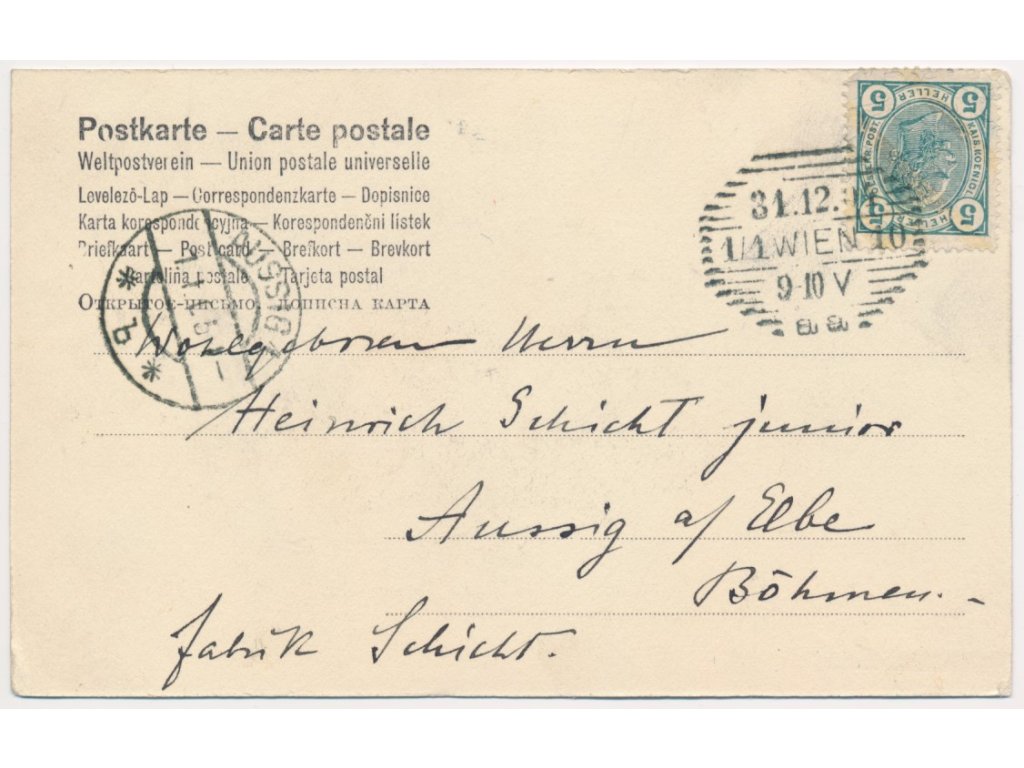 Postkarte — Carte postale
Weltpostverein — Union postale universelle
Levelező-Lap — Correspondenzkarte — Dopisnice
Karta korespondencyjna — Korespondenčni lístek
Briefkaart — Postcard — Brefkort — Brevkort
Cartolina postale — Tarjeta postal
Открытое письмо. Дописна карта
5 5
HELLER
KAIS. KOENIGL.
5 5
31.12.
1/1 WIEN 10
9-10 V
a a
AUSSIG 1
1.1.5
* b *
Wohlgeboren Herrn
Heinrich Schicht junior
Aussig a/ Elbe
Böhmen.-
Fabrik Schicht.